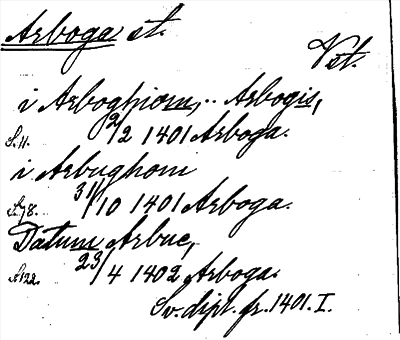 Arboga st.
Vst.
i Arboghiom, .. Arbogis,
S. 11. 2/2 1401 Arboga.
i Arbughom
S. 78. 31/10 1401 Arboga.
Datum Arbue,
S. 122. 23/4 1402 Arboga.
Sv. dipl. fr. 1401. I.